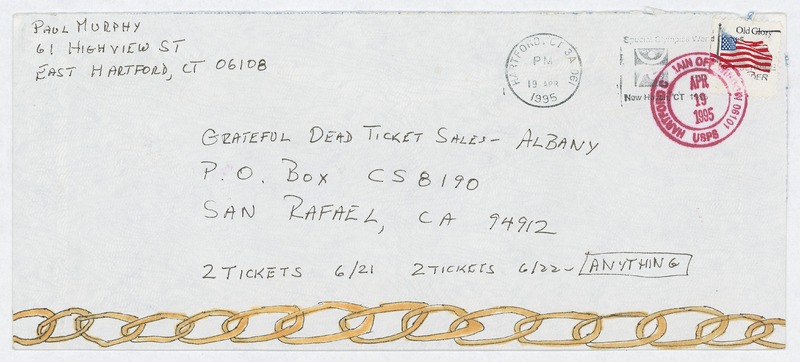 PAUL MURPHY
61 HIGHVIEW ST
EAST HARTFORD, CT 06108
HARTFORD, CT 3A 061
PM
19 APR
1995
Special Olympics World
New Haven CT
Old Glory
HARTFORD CT MAIN OFC WINDOW 06101
APR
19
1995
USPS
GRATEFUL DEAD TICKET SALES - ALBANY
P.O. BOX CS8190
SAN RAFAEL, CA 94912
2 TICKETS 6/21 2 TICKETS 6/22 - ANYTHING